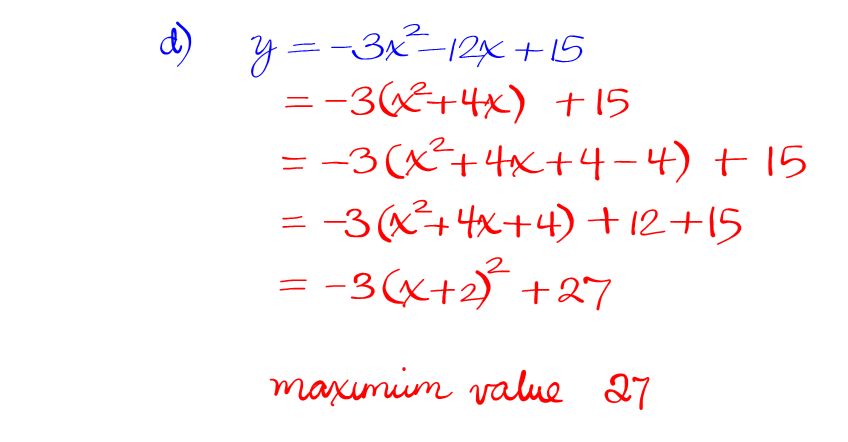 d) y = -3x² - 12x + 15
= -3(x² + 4x) + 15
= -3(x² + 4x + 4 - 4) + 15
= -3(x² + 4x + 4) + 12 + 15
= -3(x + 2)² + 27
maximum value 27